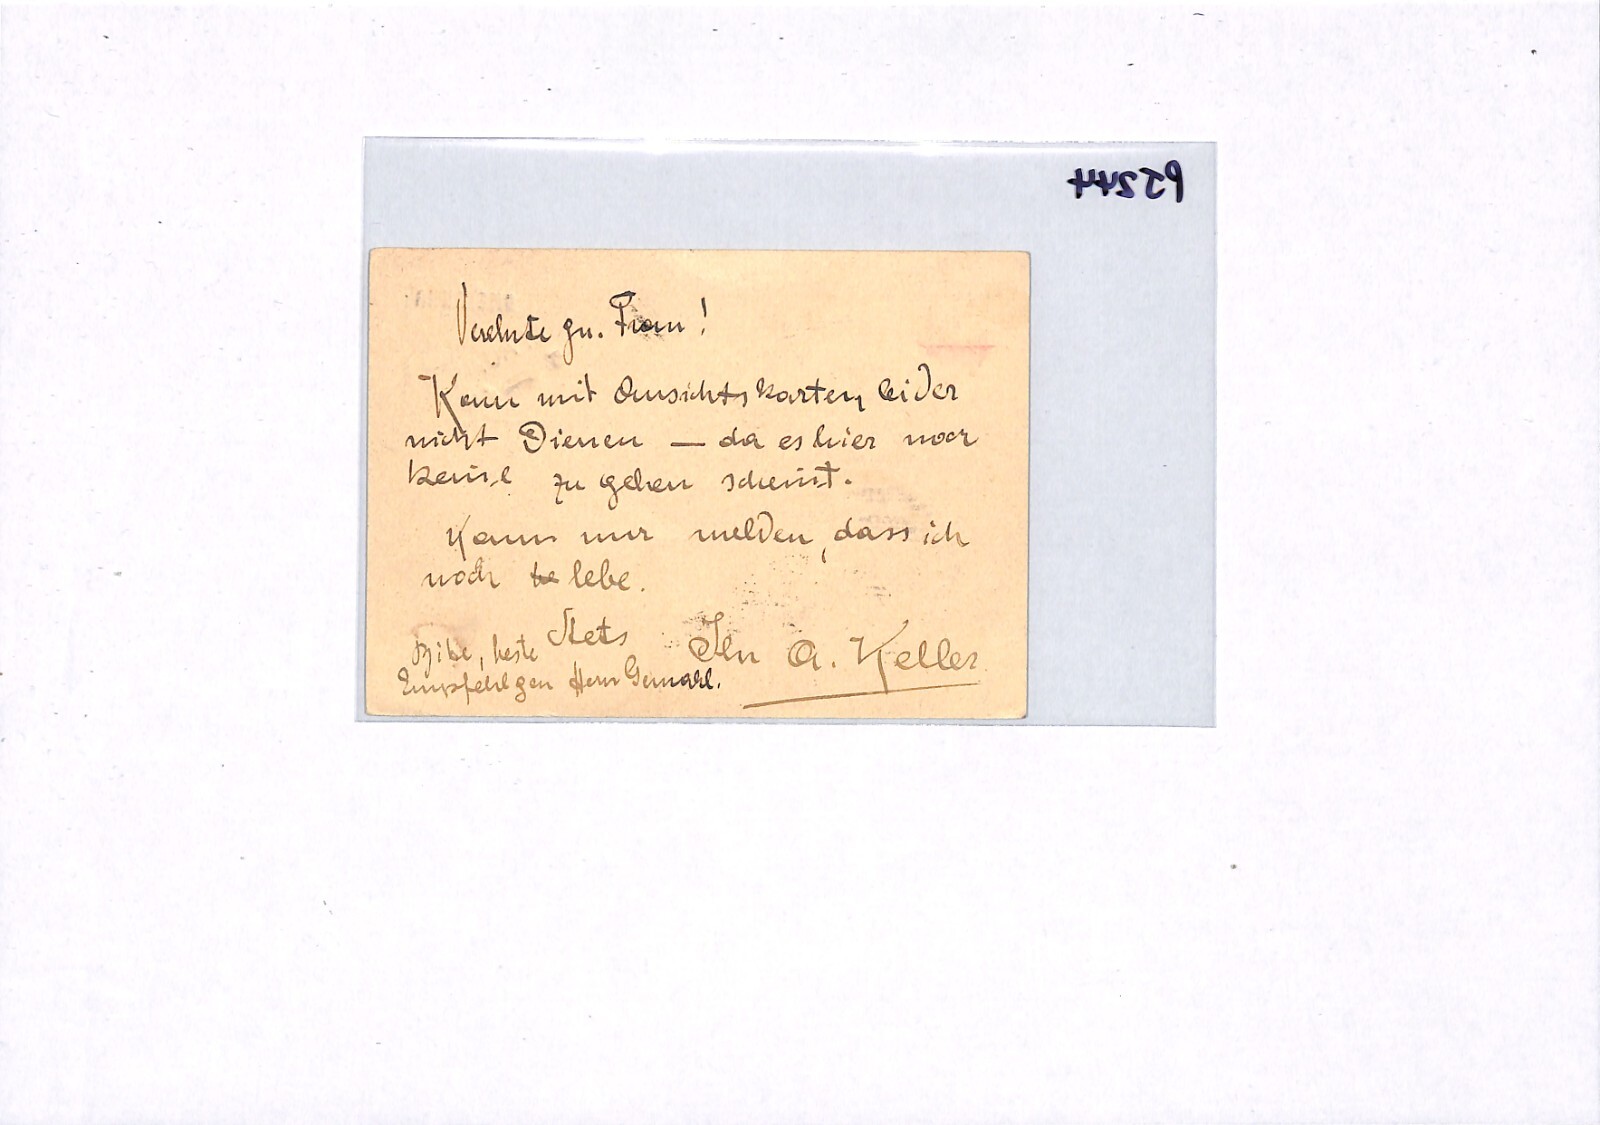 PJ244
Verehrte gn. Frau!
Kann mit Ansichtskarten leider
nicht Dienen — da es hier noch
keine zu geben scheint.
Kann nur melden, dass ich
noch be lebe.
Stets Ihr A. Keller
Bitte, beste
Empfehlgen Herrn Gemahl.